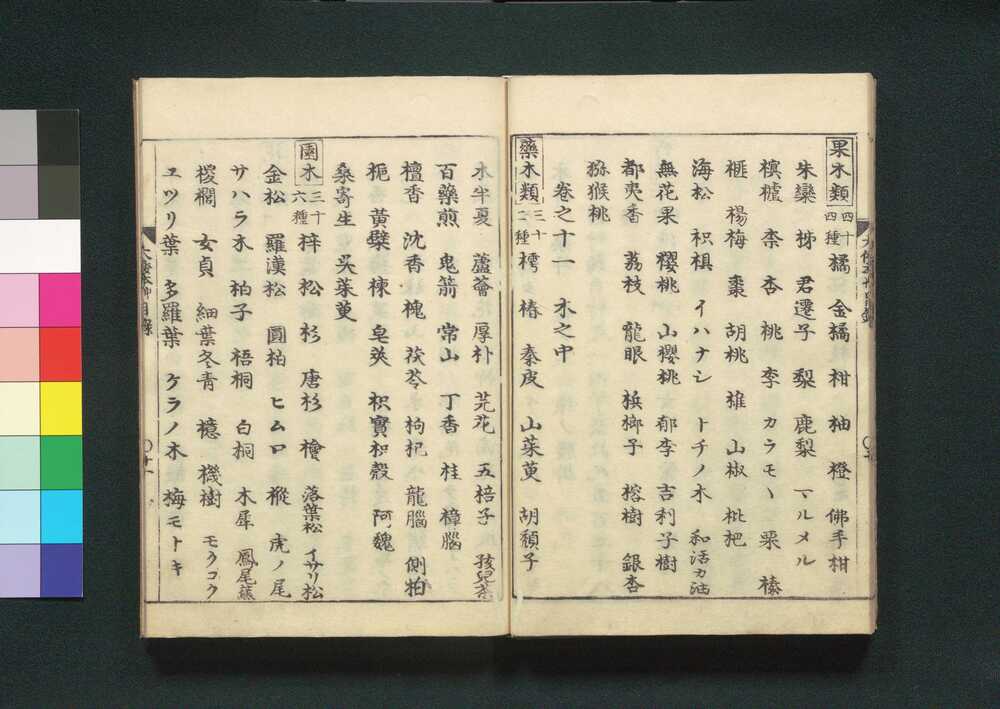 果木類 四十四種 橘 金橘 柑 柚 橙 佛手柑
朱欒 柹 君遷子 梨 鹿梨 マルメル
榠樝 柰 杏 桃 李 カラモヽ 栗 榛
榧 楊梅 棗 胡桃 椎 山椒 枇杷
海松 枳椇 イハナシ トチノ木 和活力油
無花果 櫻桃 山櫻桃 郁李 吉利子樹
都夷香 荔枝 龍眼 檳榔子 榕樹 銀杏
猕猴桃
卷之十一 木之中
藥木類 三十二種 樗 椿 秦皮 山茱萸 胡頽子
木半夏 蘆薈 厚朴 芫花 五棓子 孩兒茶
百藥煎 鬼箭 常山 丁香 桂 樟腦
檀香 沈香 槐 茯苓 枸杞 龍腦 側柏
梔 黃櫱 楝 皂莢 枳實 枳殼 阿魏
桑寄生 吳茱萸
園木 三十六種 梓 松 杉 唐杉 檜 落葉松 イサリ松
金松 羅漢松 圓柏 ヒムロ 樅 虎ノ尾
サハラ木 柏子 梧桐 白桐 木犀 鳳尾蕉
椶櫚 女貞 細葉冬青 檍 機樹 モクコク
ユツリ葉 多羅葉 ケラノ木 梅モトキ
大倭本艸目錄
〇十一